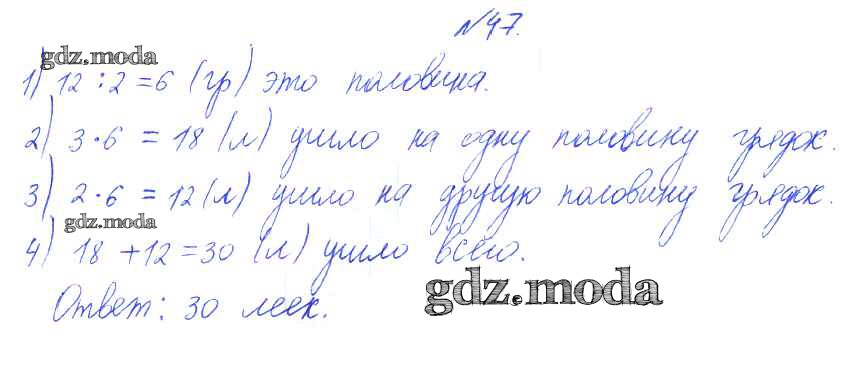 №47.
gdz.moda
1) 12 : 2 = 6 (гр) это половина.
2) 3 · 6 = 18 (л) ушло на одну половину грядок.
3) 2 · 6 = 12 (л) ушло на другую половину грядок.
gdz.moda
4) 18 + 12 = 30 (л) ушло всего.
gdz.moda
Ответ: 30 леек.